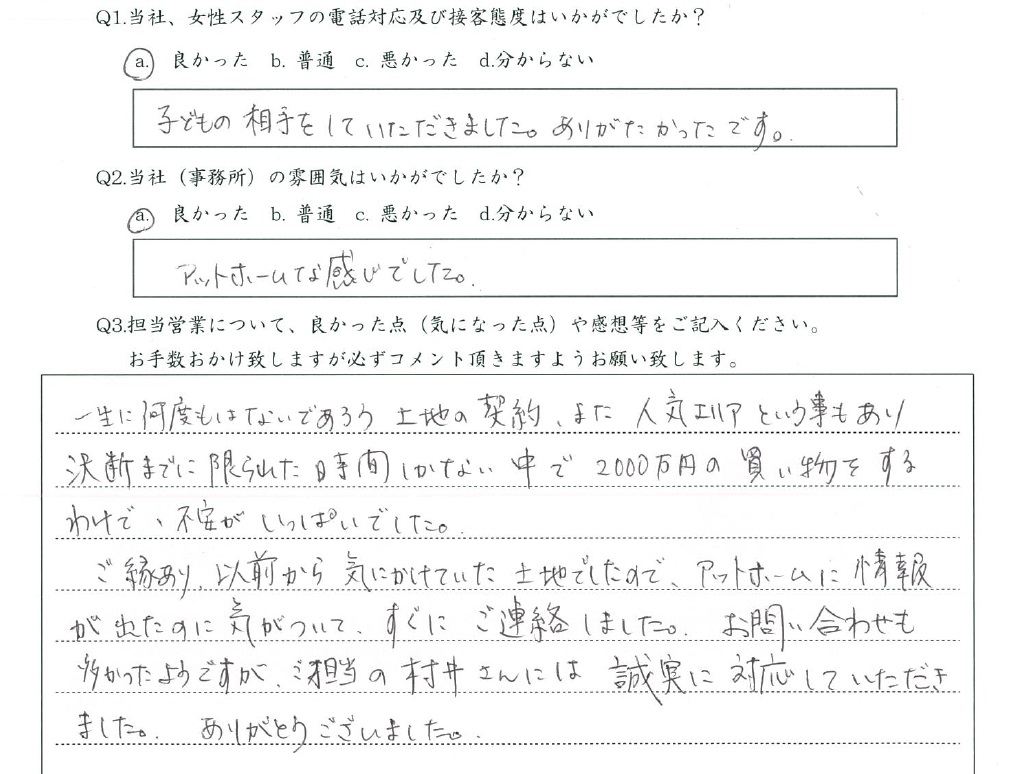 Q1.当社、女性スタッフの電話対応及び接客態度はいかがでしたか？
a. 良かった b. 普通 c. 悪かった d.分からない
子どもの相手をしていただきました。ありがたかったです。
Q2.当社（事務所）の雰囲気はいかがでしたか？
a. 良かった b. 普通 c. 悪かった d.分からない
アットホームな感じでした。
Q3.担当営業について、良かった点（気になった点）や感想等をご記入ください。
お手数おかけ致しますが必ずコメント頂きますようお願い致します。
一生に何度もはないであろう土地の契約、また人気エリアという事もあり
決断までに限られた時間しかない中で2000万円の買い物をする
わけで、不安がいっぱいでした。
ご縁あり、以前から気にかけていた土地でしたので、アットホームに情報
が出たのに気がついて、すぐにご連絡しました。お問い合わせも
多かったようですが、ご担当の村井さんには誠実に対応していただき
ました。ありがとうございました。